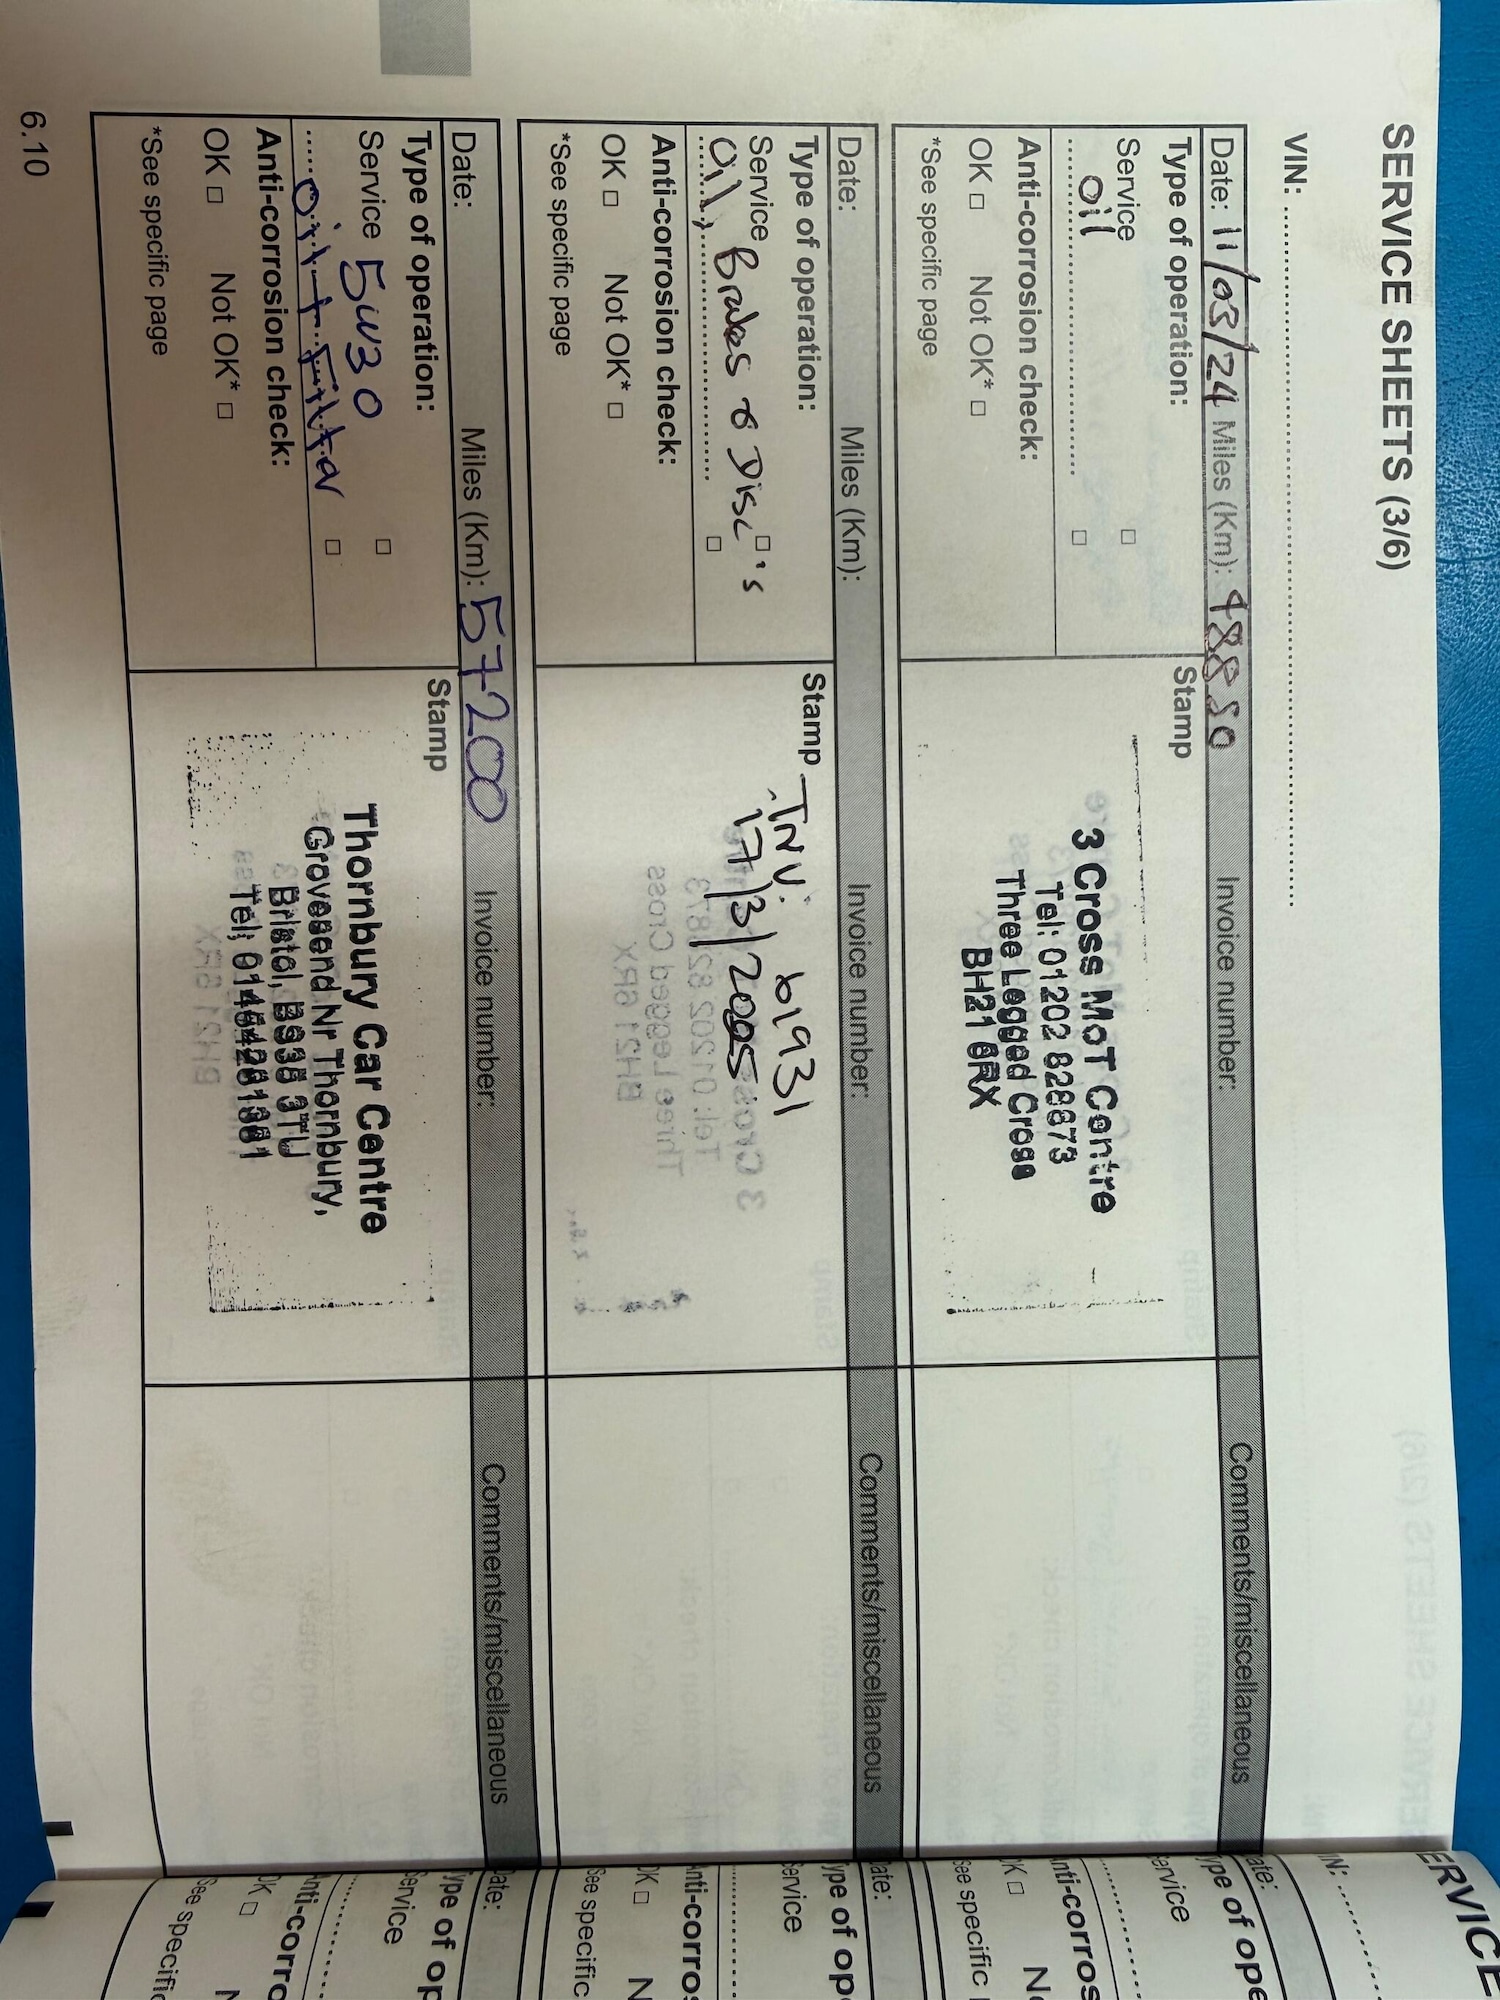 SERVICE SHEETS (3/6)
VIN: ....................
Date: 11/03/24 Miles (Km): 48850 Invoice number: Comments/miscellaneous
Type of operation:
Stamp
Service □
Oil □
Anti-corrosion check:
OK □ Not OK* □
*See specific page
3 Cross MoT Centre
Tel: 01202 828873
Three Legged Cross
BH21 6RX
Date: Miles (Km): Invoice number: Comments/miscellaneous
Type of operation:
Stamp
Service □
Oil, Brakes & Disc's □
Anti-corrosion check:
OK □ Not OK* □
*See specific page
INV: 61931
17/3/2005
Date: Miles (Km): 57200 Invoice number: Comments/miscellaneous
Type of operation:
Stamp
Service 5W30 □
Oil + Filter □
Anti-corrosion check:
OK □ Not OK* □
*See specific page
Thornbury Car Centre
Grovesend Nr Thornbury,
Bristol, BS35 3TU
Tel; 01454281361
6.10
Date:
Type of
Service
OK □
Date:
Service
OK □
See specific
Date:
Type of
Service
OK □